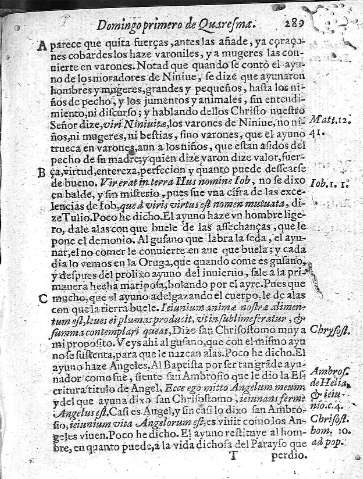 Domingo primero de Quaresma. 289
A parece que quita fuerças, antes las añade, ya coraço-
nes cobardes los haze varoniles, y a mugeres las con-
uierte en varones. Notad que quando se contó el ayu-
no de los moradores de Niniue, se dize que ayunaron
hombres y mugeres, grandes y pequeños, hasta los ni-
ños de pecho, y los jumentos y animales, sin entendi-
miento, ni discurso; y hablando dellos Christo nuestro
Señor dize, viri Niniuitæ, los varones de Niniue, no ni-
ños, ni mugeres, ni bestias, sino varones, que el ayuno
trueca en varones, aun a los niños, que estan asidos del
pecho de su madre, y quien dize varon dize valor, fuer-
B ça, virtud, entereza, perfecion y quanto puede dessearse
de bueno. Vir erat in terra Hus nomine Iob, no se dixo
en balde, y sin misterio, pues fue vna cifra de las exce-
lencias de Iob, que à viris virtus est nomen mutuata, di-
ze Tulio. Poco he dicho. El ayuno haze vn hombre lige-
ro, dale alas con que buele de las assechanças, que le
pone el demonio. Al gusano que labra la seda, el ayu-
nar, el no comer le conuierte en aue que buela; y cada
dia lo vemos en la Oruga, que quando come es gusano,
y despues del prolixo ayuno del inuierno, sale a la pri-
mauera hecha mariposa, bolando por el ayre. Pues que
C mucho, que el ayuno adelgazando el cuerpo, le dé alas
con que la tierra buele. Ieiunium animæ nostræ alimen-
tum est, leues ei plumas producit, vt ita sublime feratur, &
summa contemplari queat, Dize san Chrisostomo muy a
mi proposito. Veys ahi al gusano, que con el mismo ayu
no se sustenta, para que le nazcan alas. Poco he dicho. El
ayuno haze Angeles. Al Baptista por ser tan grāde ayu-
nador como fue, siente san Ambrosio que le dio la Es-
critura titulo de Angel. Ecce ego mitto Angelum meum
y del que ayuna dixo san Chrisostomo, ieiunans ferme
Angelus est. Casi es Angel, y sin casi lo dixo san Ambro-
sio, ieiunium vita Angelorum est, es viuir como los An-
geles viuen. Poco he dicho. El ayuno restituye al hom-
bre, en quanto puede, a la vida dichosa del Parayso que
T perdio.
Matt. 12.
41.
Iob. 1. 1.
Chrysost.
Ambros.
de Helia,
& ieiu-
nio. c. 4.
Chrisost.
hom. 10.
ad pop.